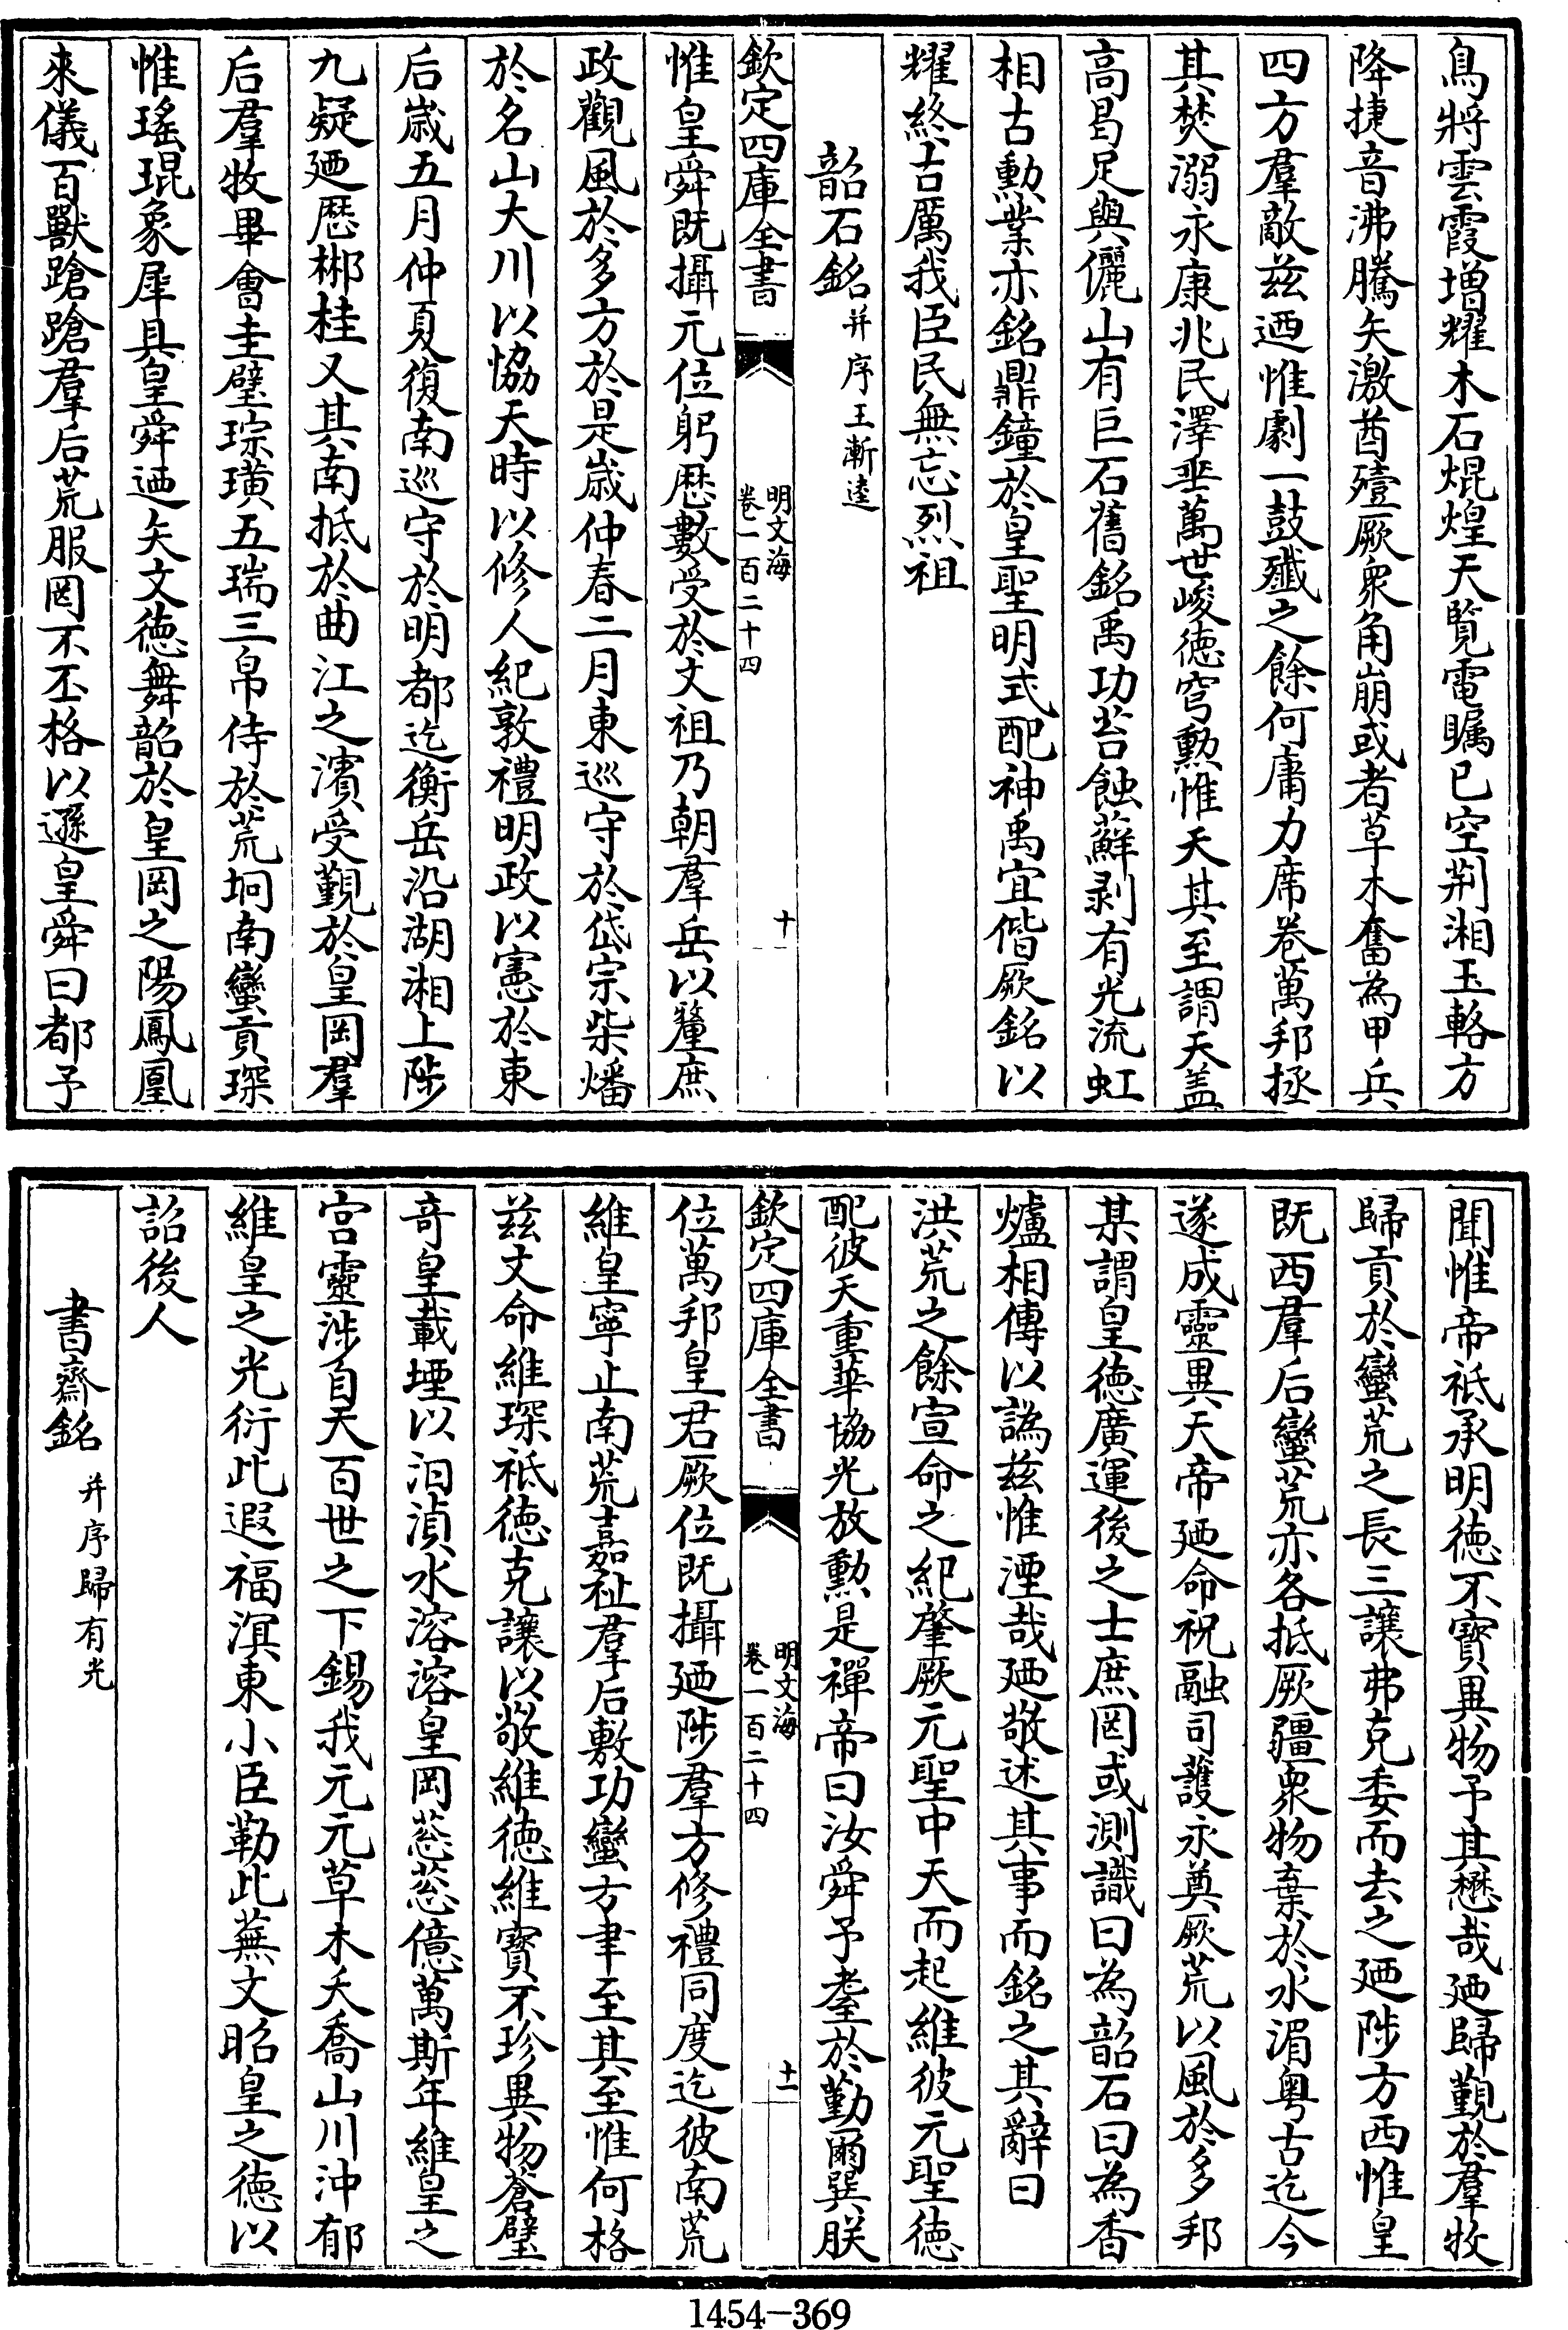 鳥將雲霞增耀木石焜煌天覧電矚已空荆湘玉輅方
降捷音沸騰矢激酋殪厥衆角崩或者草木奮為甲兵
四方羣敵兹迺惟劇一鼓殲之餘何庸力席卷萬邦拯
其焚溺永康兆民澤埀萬世峻徳穹勲惟天其至謂天盖
高曷足與儷山有巨石舊銘禹功苔蝕蘚剥有光流虹
相古勲業亦銘鼎鐘於皇聖明式配神禹宜偕厥銘以
耀終古厲我臣民無忘烈祖
韶石銘并序王漸逵
欽定四庫全書
明文海
卷一百二十四
十
惟皇舜既攝元位躬厯數受於文祖乃朝羣岳以釐庶
政觀風於多方於是歳仲春二月東巡守於岱宗柴燔
於名山大川以恊天時以修人紀敦禮明政以憲於東
后歳五月仲夏復南巡守於明都迄衡岳沿湖湘上陟
九疑廼厯郴桂又其南抵於曲江之濱受覲於皇岡羣
后羣牧畢會圭璧琮璜五瑞三帛侍於荒坰南蠻貢琛
惟瑤琨象犀具皇舜迺矢文徳舞韶於皇岡之陽鳳凰
來儀百獸蹌蹌羣后荒服罔不丕格以遜皇舜曰都予
聞惟帝祗承明徳不寳異物予其懋哉廼歸覲於羣牧
歸貢於蠻荒之長三讓弗克委而去之廼陟方西惟皇
既西羣后蠻荒亦各抵厥疆衆物棄於水湄粤古迄今
遂成靈異天帝廼命祝融司護永奠厥荒以風於多邦
某謂皇徳廣運後之士庶罔或測識曰為韶石曰為香
爐相傳以譌兹惟湮哉廼敬述其事而銘之其辭曰
洪荒之餘宣命之紀肇厥元聖中天而起維彼元聖徳
配彼天重華協光放勲是禪帝曰汝舜予耄於勤爾巽朕
欽定四庫全書
明文海
卷一百二十四
十一
位萬邦皇君厥位既攝廼陟羣方修禮同度迄彼南荒
維皇寧止南荒嘉祉羣后敷功蠻方聿至其至惟何格
兹文命維琛祗徳克讓以敬維徳維寳不珍異物蒼璧
竒皇載堙以汨湞水溶溶皇岡葱葱億萬斯年維皇之
宫靈涉自天百世之下錫我元元草木夭喬山川沖郁
維皇之光衍此遐福滇東小臣勒此蕪文昭皇之徳以
詔後人
書齋銘并序歸有光
1454-369